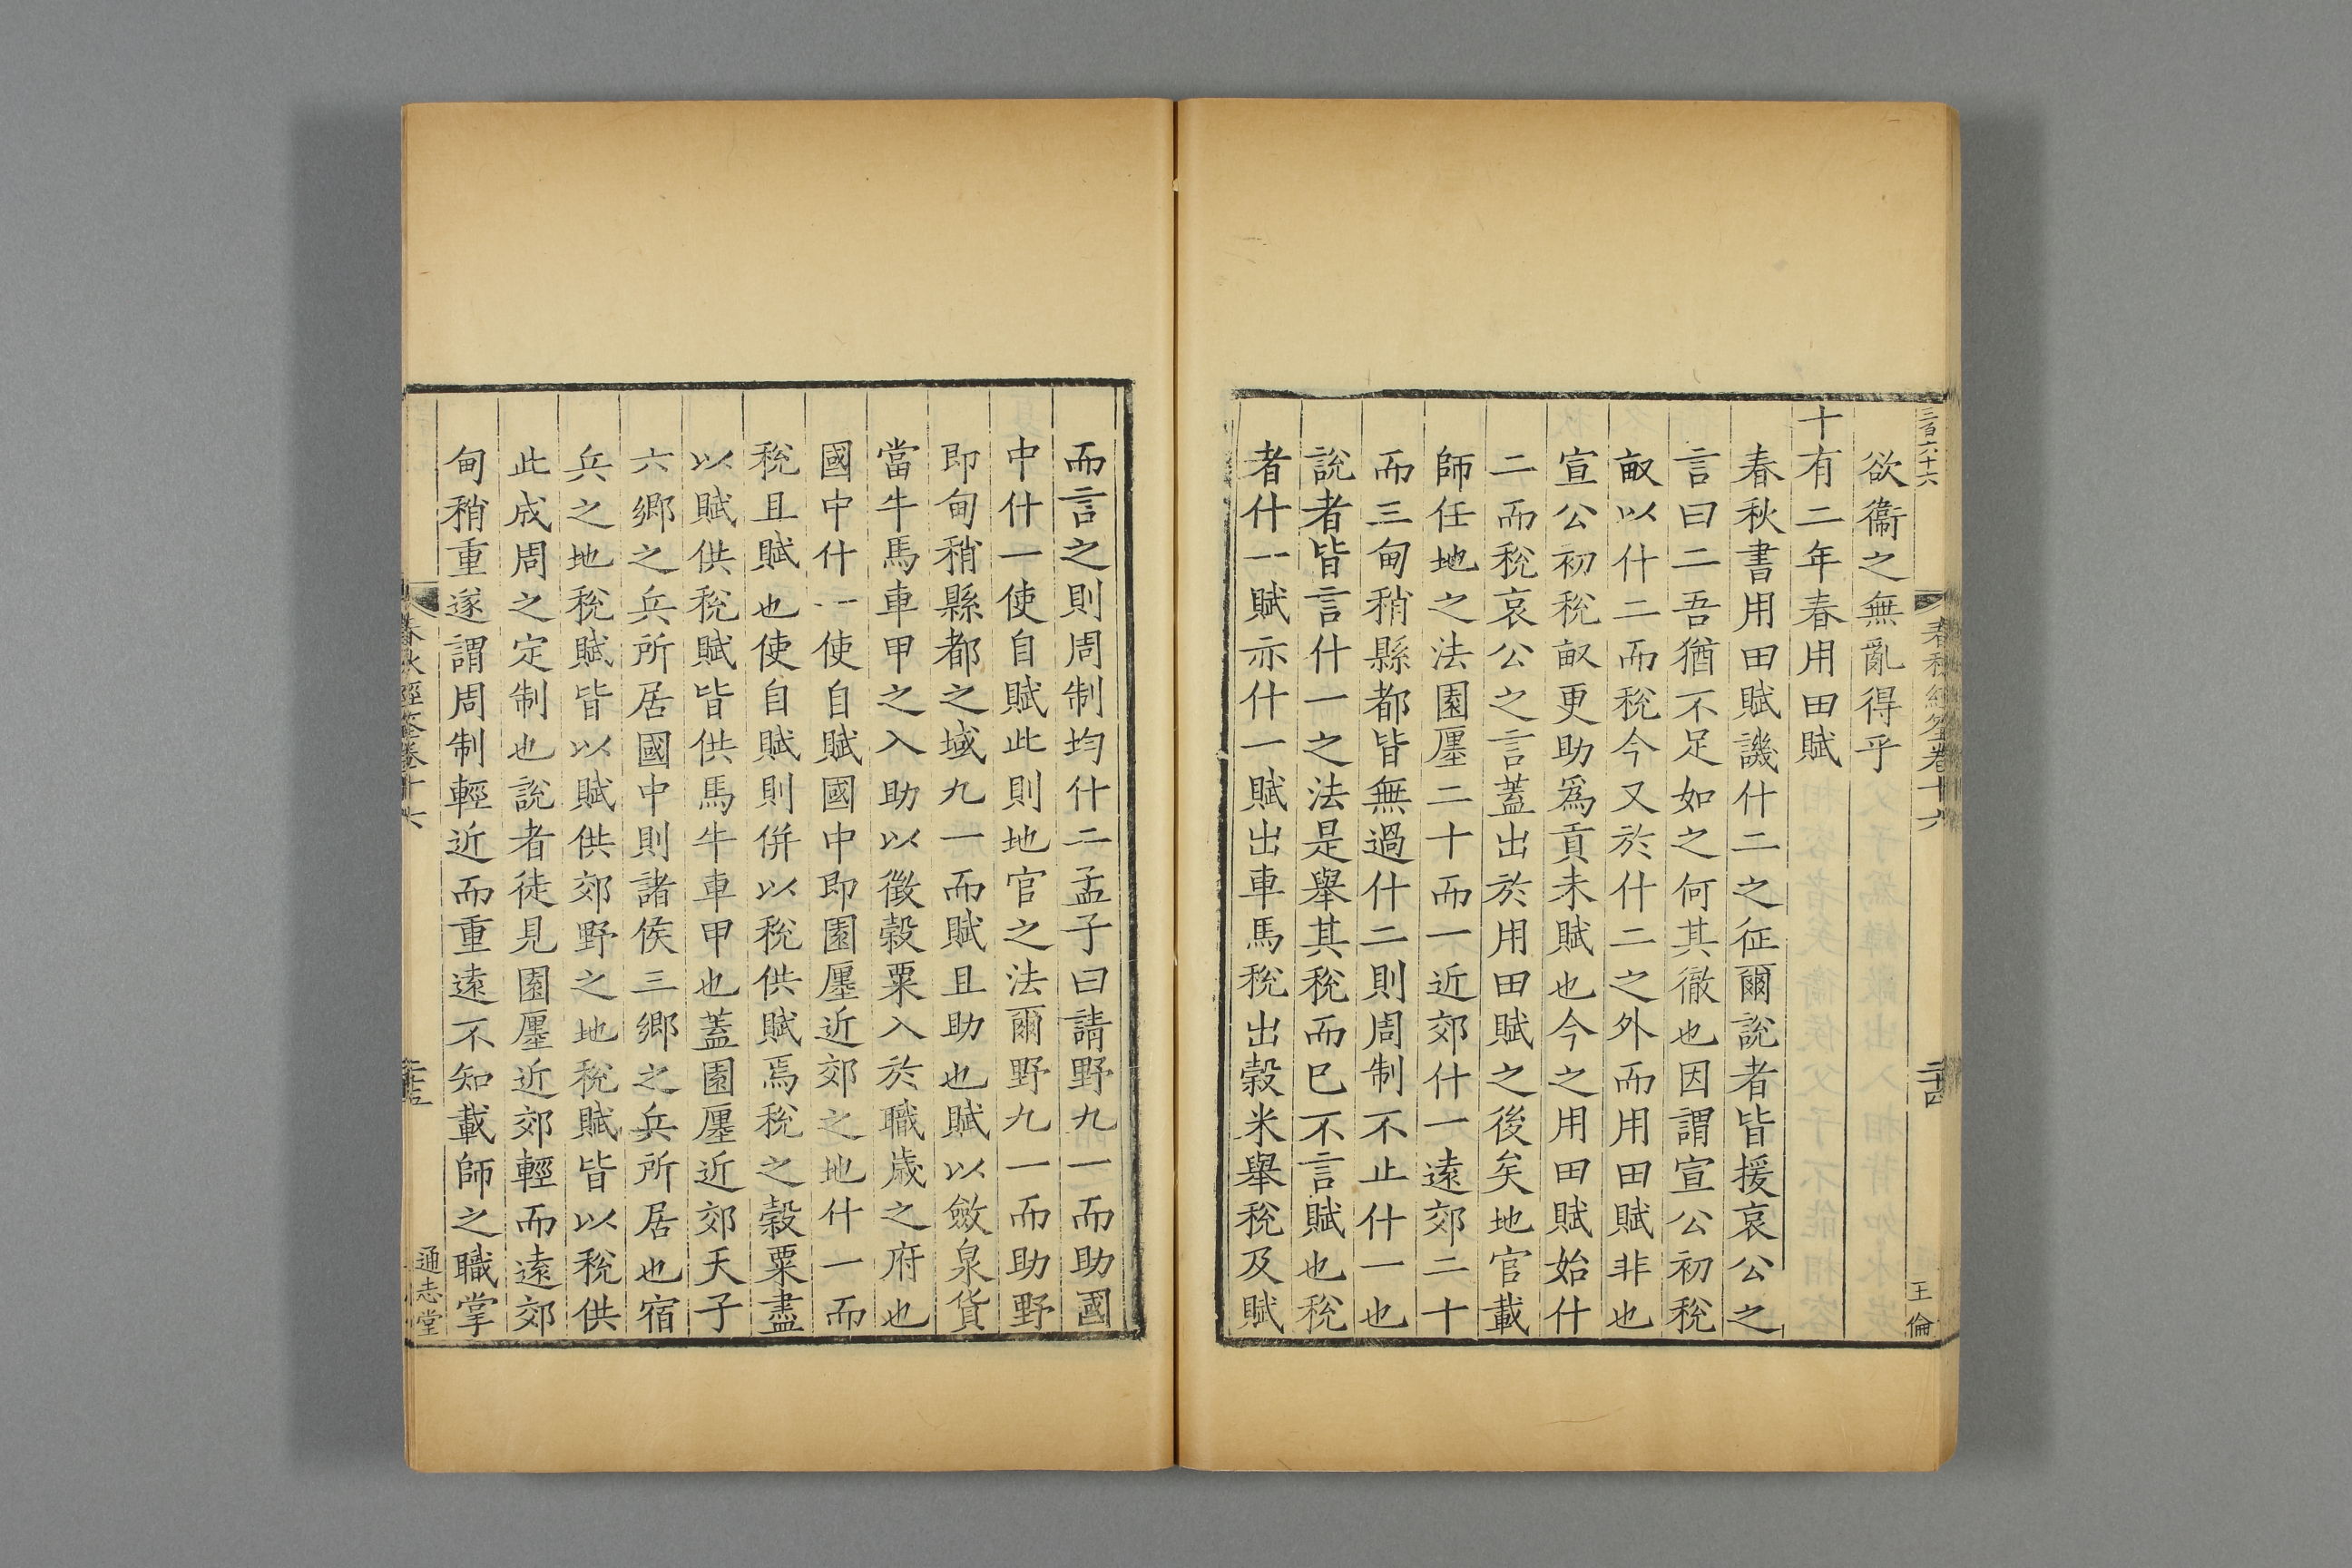 三百六十六
春秋經筌卷十六
二十四
王倫
欲衞之無亂得乎
十有二年春用田賦
春秋書用田賦譏什二之征爾說者皆援哀公之
言曰二吾猶不足如之何其徹也因謂宣公初稅
畝以什二而稅今又於什二之外而用田賦非也
宣公初稅畝更助爲貢未賦也今之用田賦始什
二而稅哀公之言蓋出於用田賦之後矣地官載
師任地之法園廛二十而一近郊什一遠郊二十
而三甸稍縣都皆無過什二則周制不止什一也
說者皆言什一之法是舉其稅而已不言賦也稅
者什一賦亦什一賦出車馬稅出穀米舉稅及賦
而言之則周制均什二孟子曰請野九一而助國
中什一使自賦此則地官之法爾野九一而助野
即甸稍縣都之域九一而賦且助也賦以斂泉貨
當牛馬車甲之入助以徵穀粟入於職歲之府也
國中什一使自賦國中即園廛近郊之地什一而
稅且賦也使自賦則併以稅供賦焉稅之穀粟盡
以賦供稅賦皆供馬牛車甲也蓋園廛近郊天子
六鄉之兵所居國中則諸侯三鄉之兵所居也宿
兵之地稅賦皆以賦供郊野之地稅賦皆以稅供
此成周之定制也說者徒見園廛近郊輕而遠郊
甸稍重遂謂周制輕近而重遠不知載師之職掌
春秋經筌卷十六
二十五
通志堂